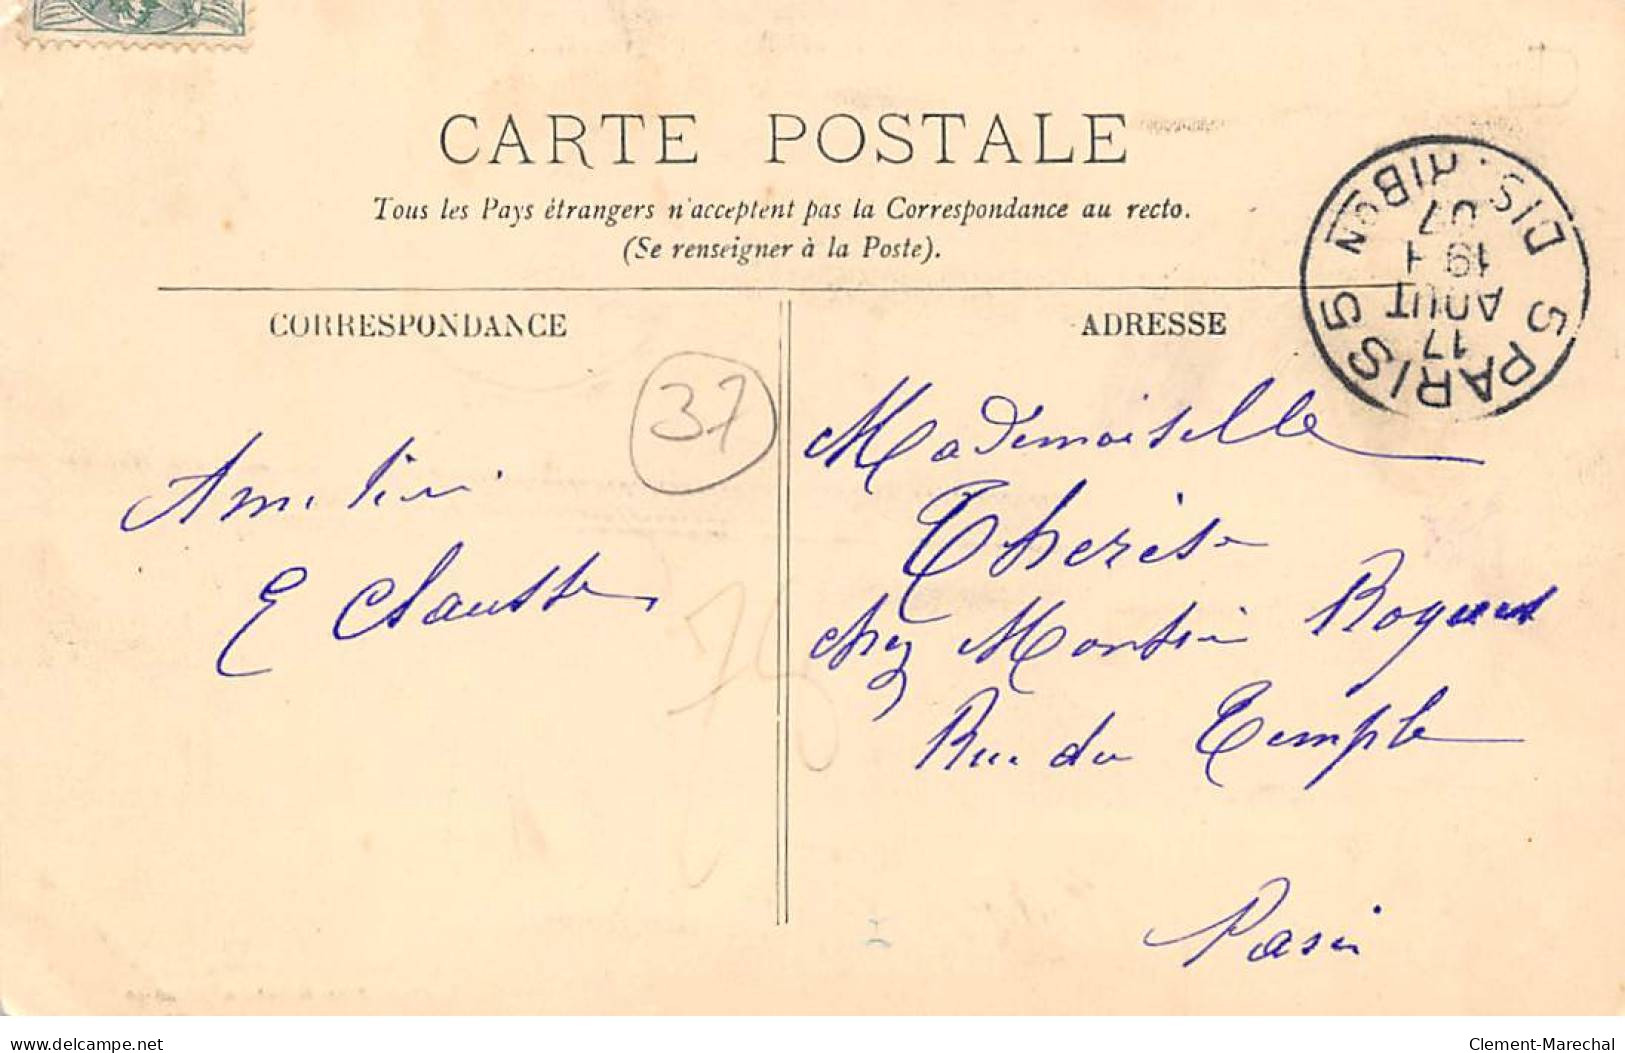 CARTE POSTALE
Tous les Pays étrangers n'acceptent pas la Correspondance au recto.
(Se renseigner à la Poste).
CORRESPONDANCE
ADRESSE
PARIS 5
DISTRIBON
17
AOUT
19 H
07
37
75
E Clausse
Mademoiselle
Therèse
chez Monsieur
Rue du Temple
Paris
delcampe.net
Clement-Marechal